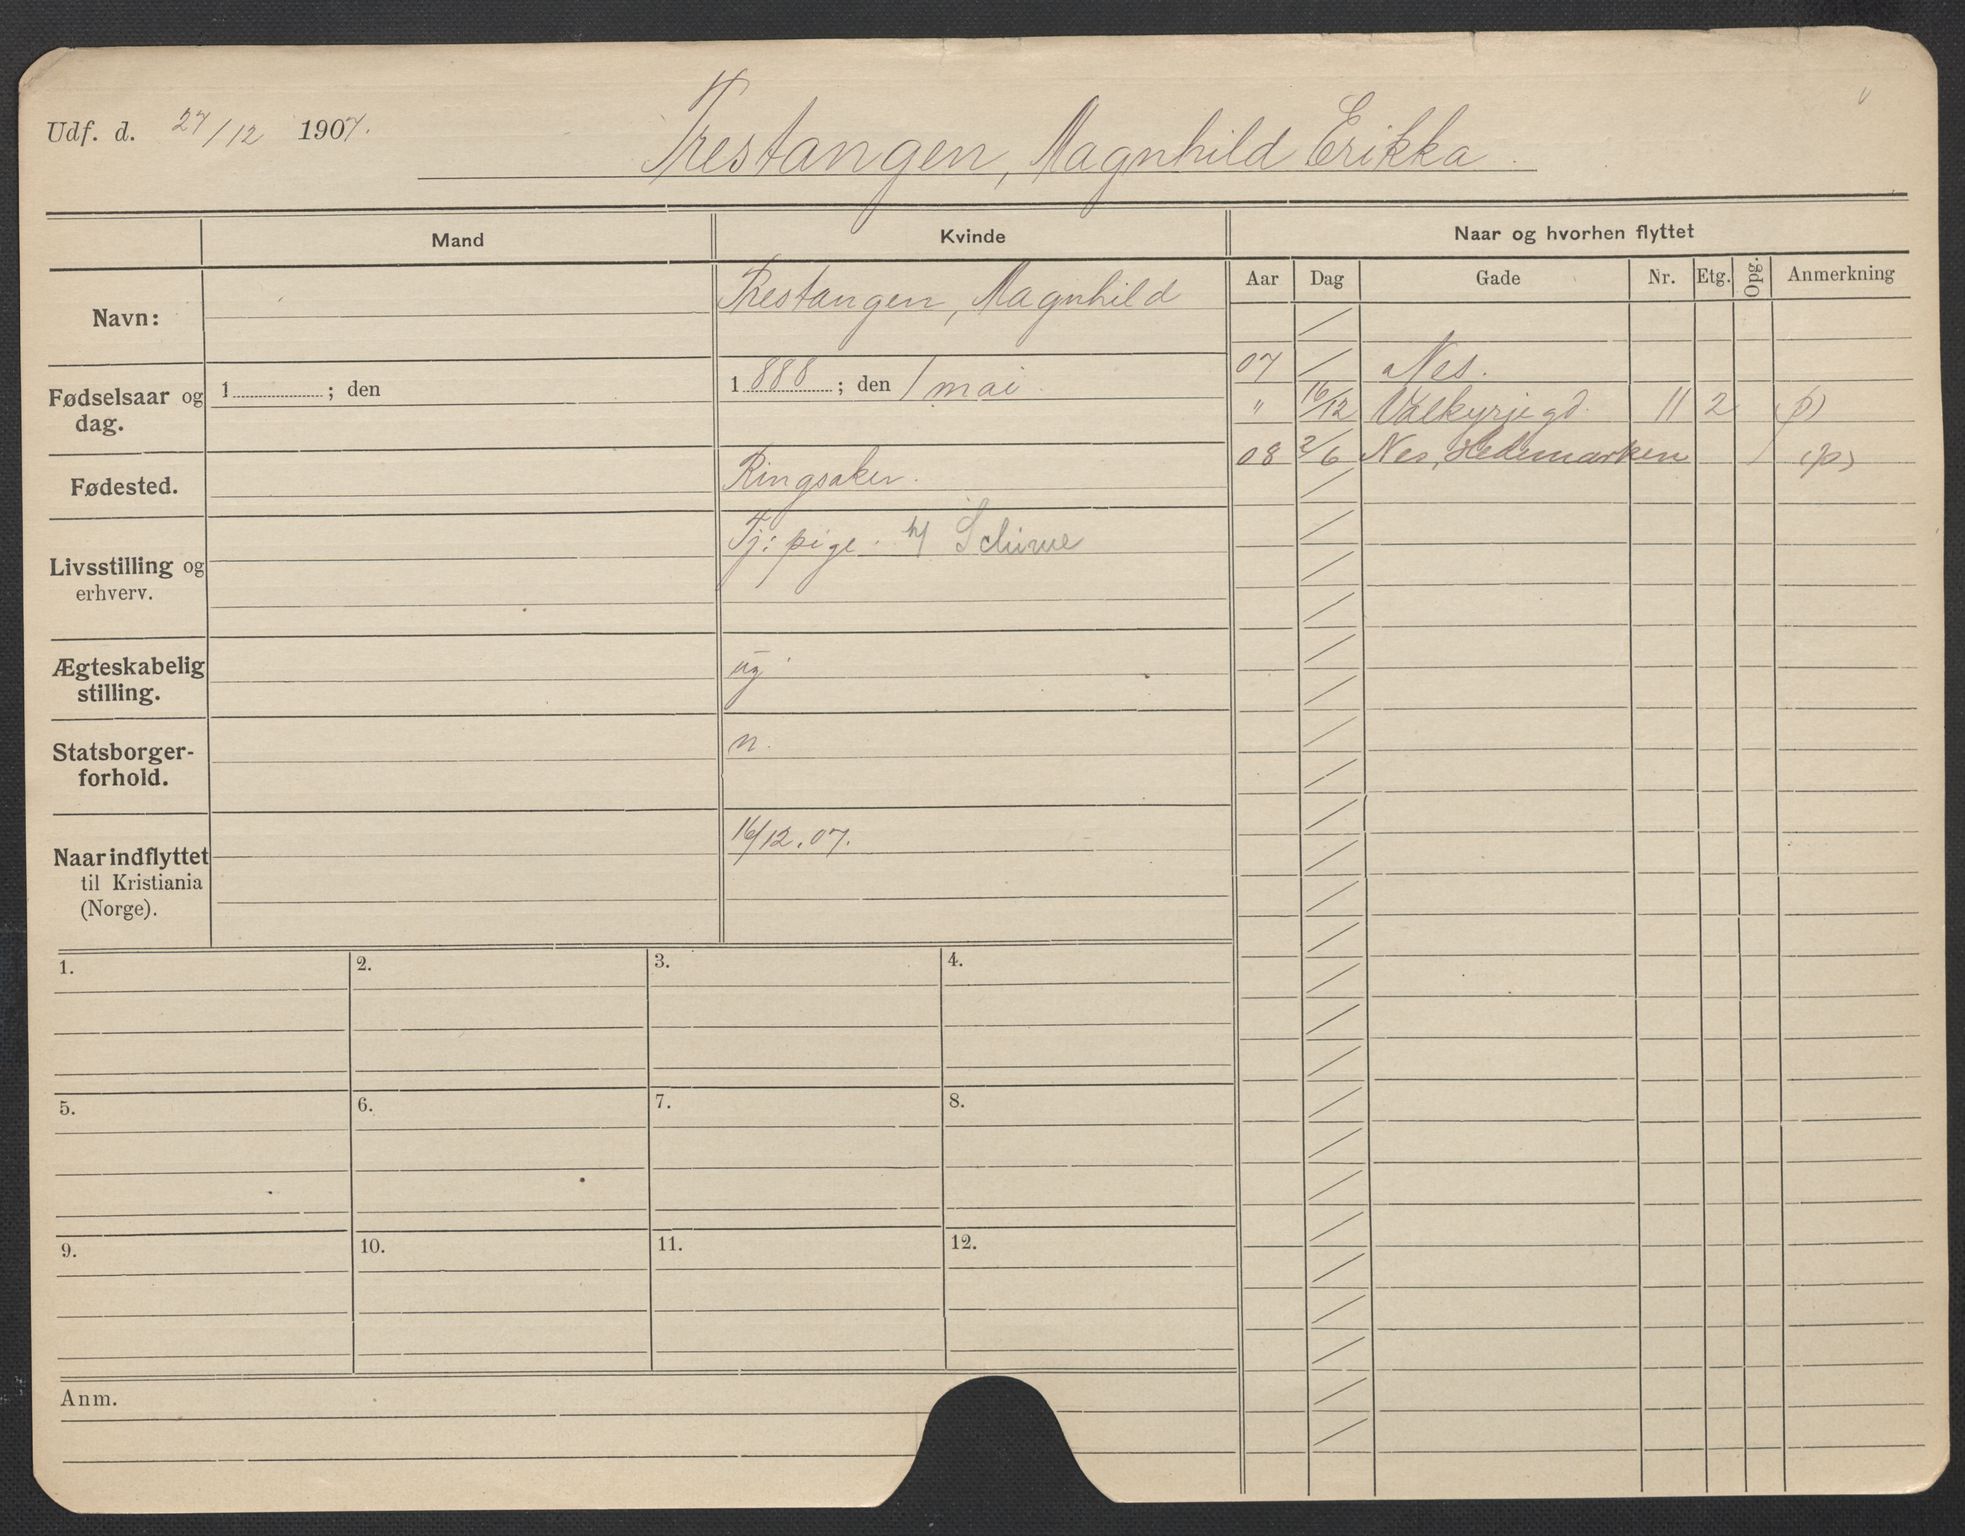 Udf. d. 27/12 1907.
Trestangen, Magnhild Erikka.
Mand
Kvinde
Naar og hvorhen flyttet
Aar Dag Gade Nr. Etg. Opg. Anmerkning
Navn:
Trestangen, Magnhild
07 / Nes.
Fødselsaar og dag.
1 ; den
1888; den 1 mai
" 16/12 Valkyrjegd. 11 2 (p)
08 2/6 Nes, Hedemarken (p)
Fødested.
Ringsaker.
Livsstilling og erhverv.
Tj: pige.
Ægteskabelig stilling.
ug
Statsborgerforhold.
n.
Naar indflyttet til Kristiania (Norge).
16/12.07.
1. 2. 3. 4.
5. 6. 7. 8.
9. 10. 11. 12.
Anm.